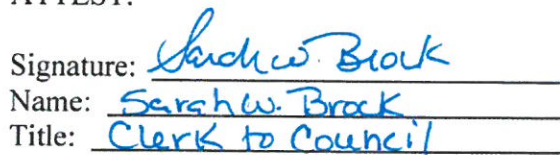 ATTEST:
Signature: Sarah W. Brock
Name: Sarah W. Brock
Title: Clerk to Council